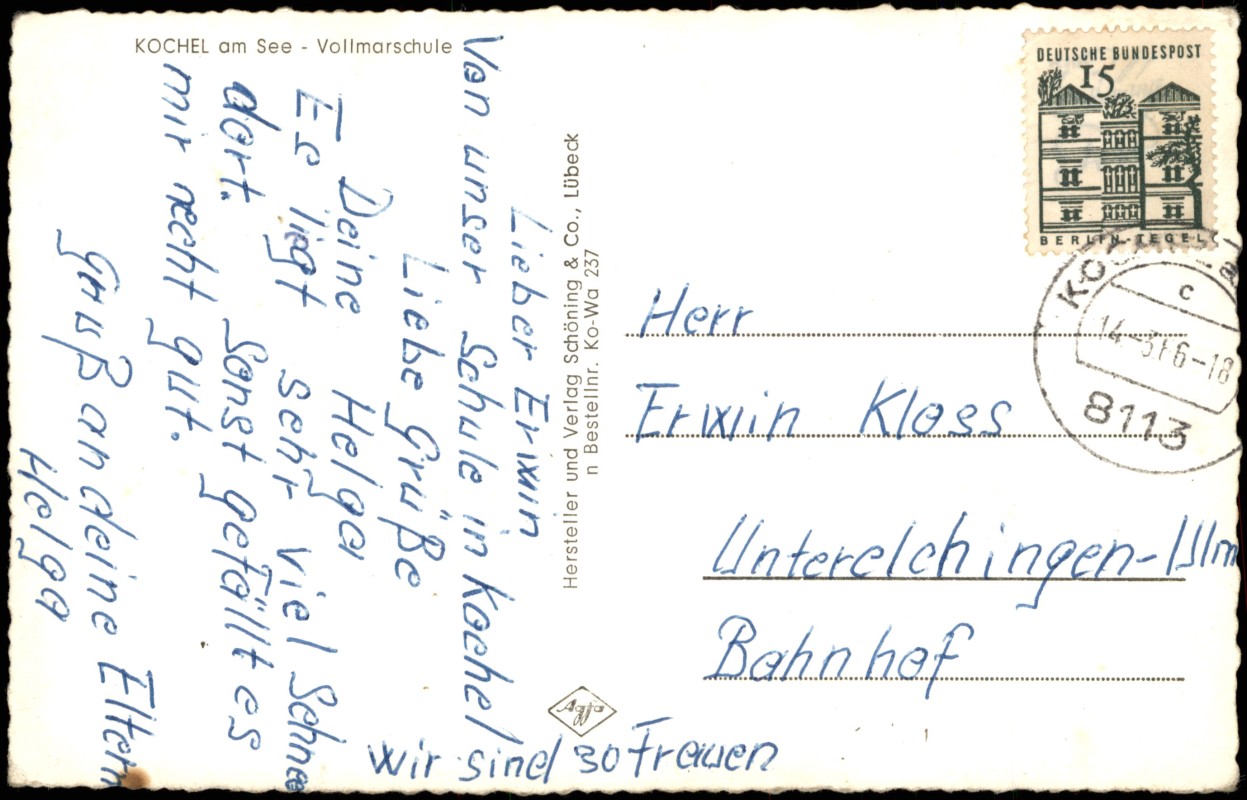 KOCHEL am See - Vollmarschule
Lieber Erwin
Von unser Schule in Kochel
Liebe Grüße
Deine Helga
Es liegt sehr viel Schnee
dort. Sonst gefällt es
mir recht gut.
Gruß an deine Eltern
Helga
wir sind 30 Frauen
Hersteller und Verlag Schöning & Co., Lübeck
n Bestellnr. Ko-Wa 237
Agfa
DEUTSCHE BUNDESPOST
15
BERLIN-TEGEL
c
14.-3
6-18
8113
Herr
Erwin Kloss
Unterelchingen-Ulm
Bahnhof